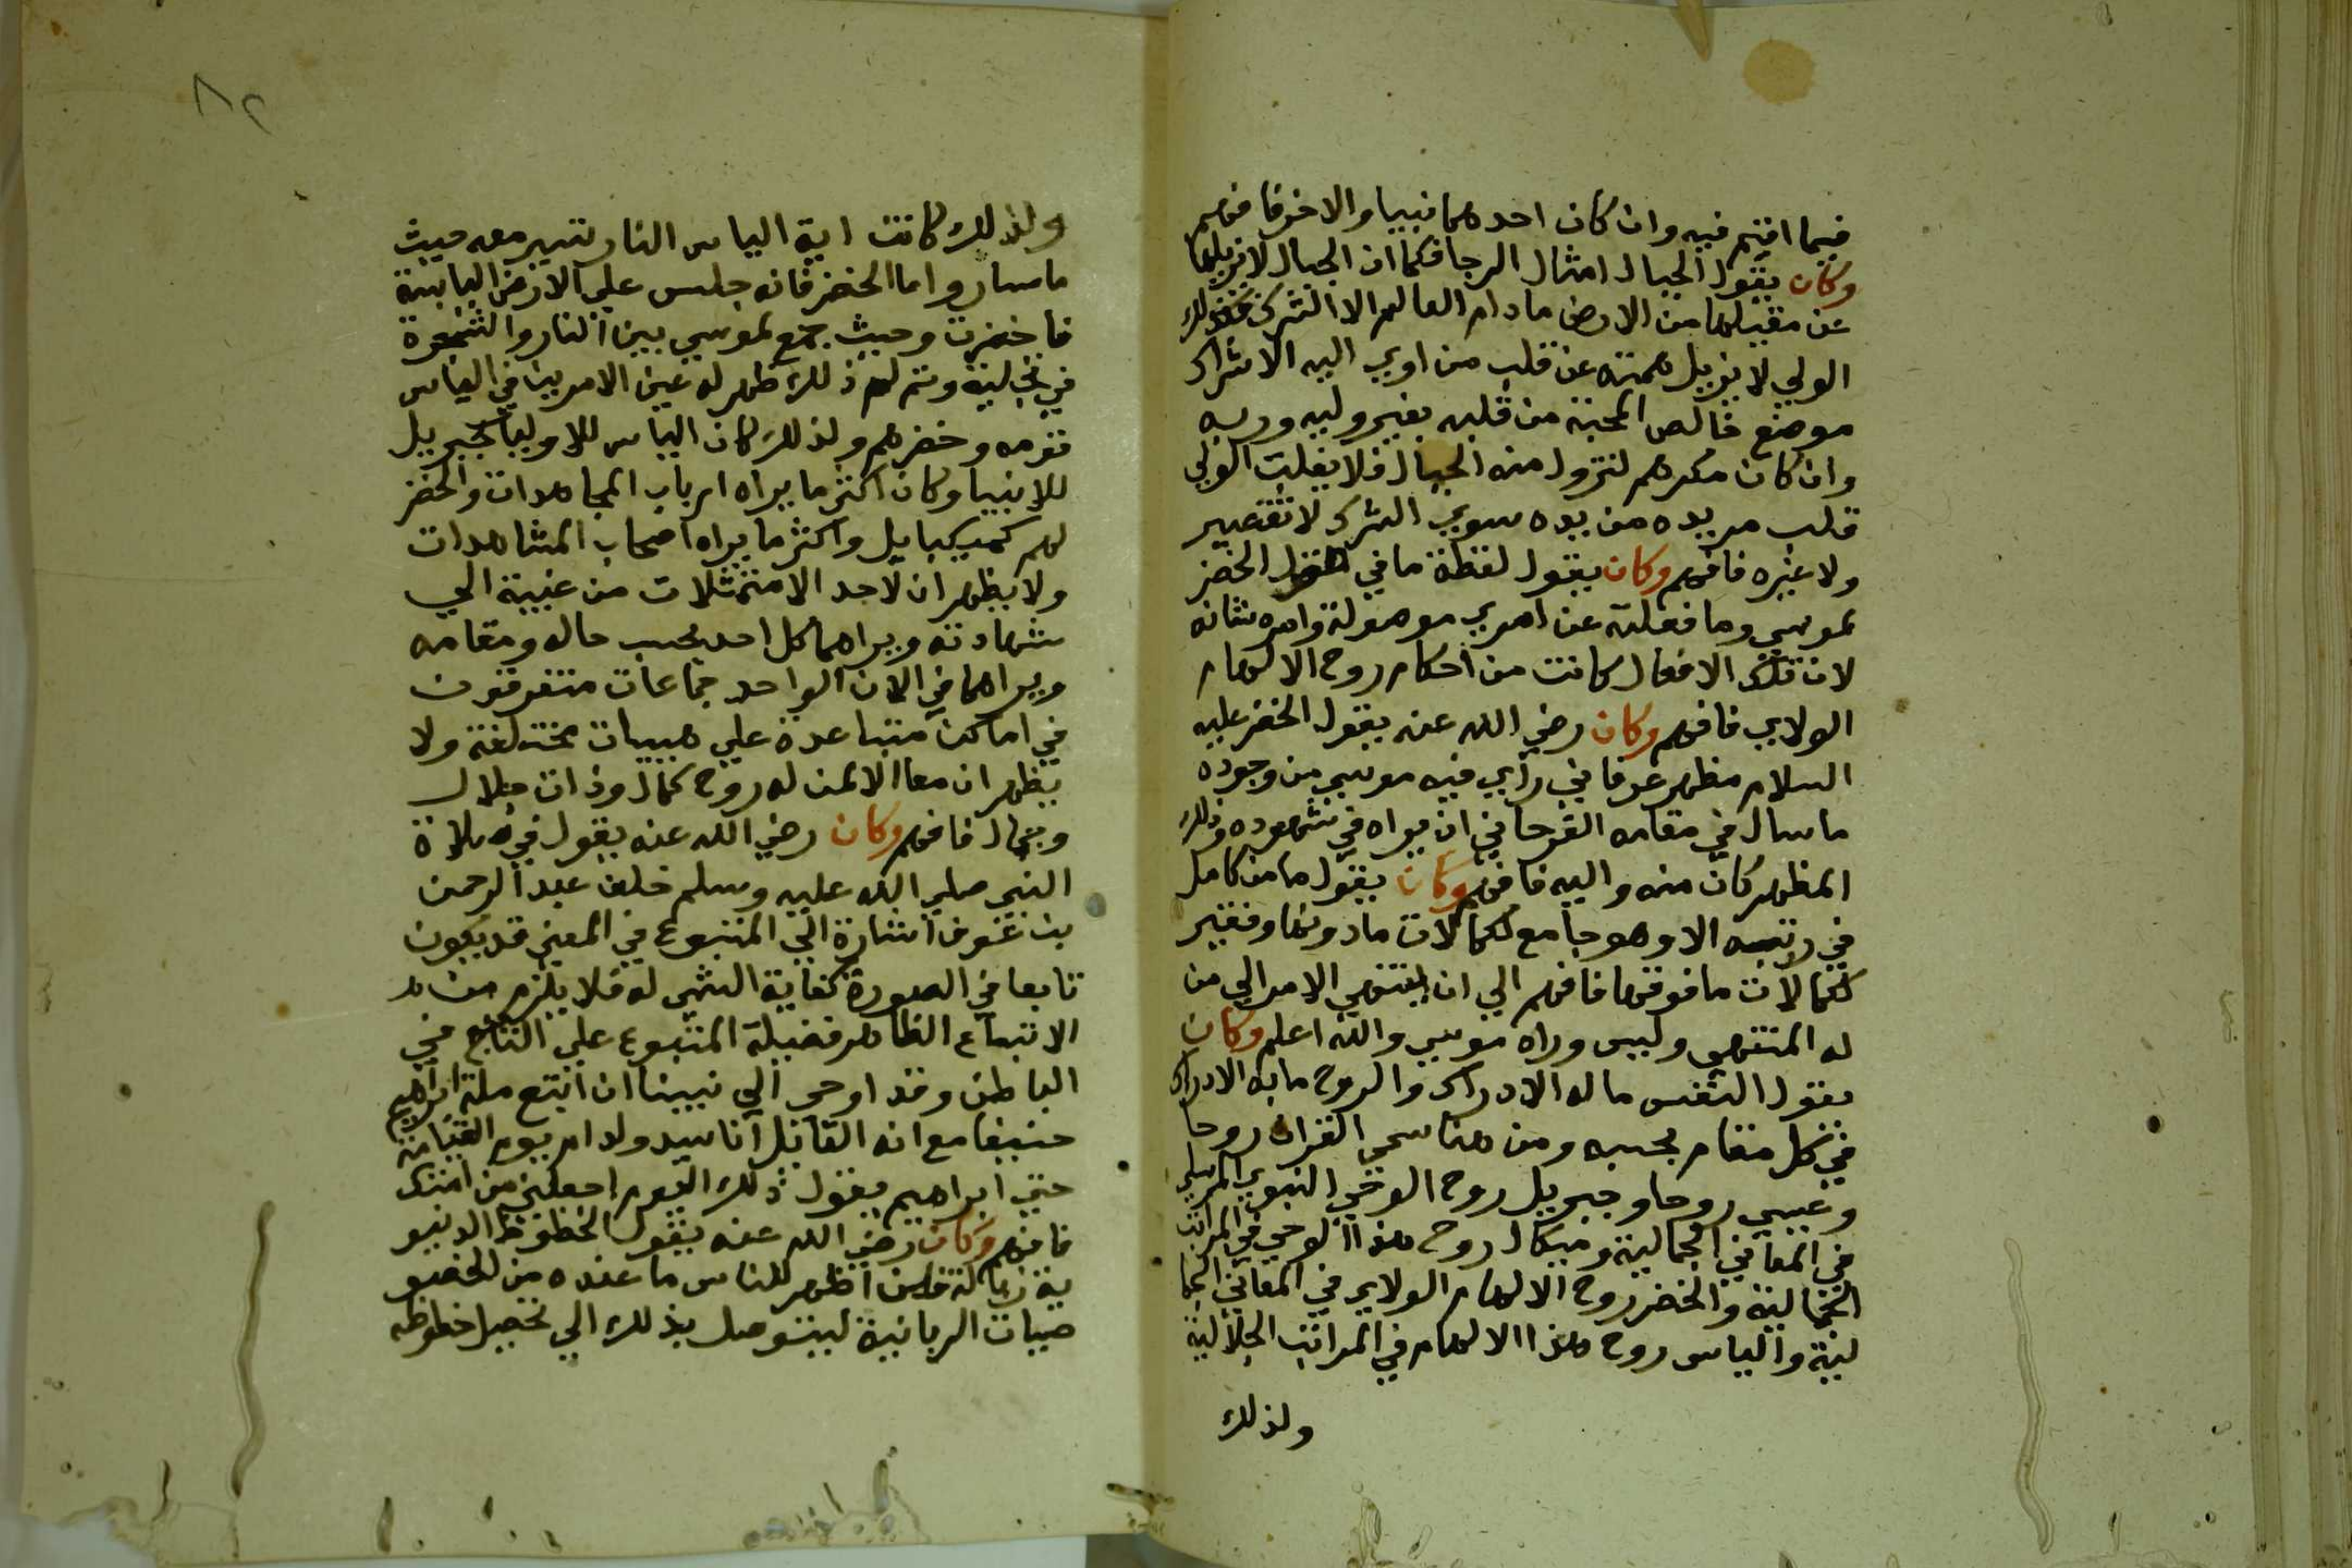 فيما اقيم فيه وان كان احدهما نبيا والاخر فافهم
وكان يقول الجبال امثال الرجا فكما ان الجبال لا يزيلها
عن مقبلها من الارض ما دام العالم الا الشرك فكذلك
الولي لا يزيل همته عن قلب من اوي اليه الا اشراك
موضع خالص المحبة من قلبه بغير وليه وربه
وان كان مكرهم لتزول منه الجبال فلا يفلت الولي
قلب مريده من يده سوي الشرك لا تقصير
ولا غيره فافهم وكان يقول لفظة ما في قول الخضر
لموسي وما فعلته عن امري موصولة وامره شانه
لان تلك الافعال كانت من احكام روح الالهام
الولاي فافهم وكان رضي الله عنه يقول الخضر عليه
السلام مظهر عرفاني راي فيه موسي من وجوده
ما سال في مقامه الفرحاني ان يراه في شهوده وذلك
المظهر كان منه واليه فافهم وكان يقول ما من كامل
في رتبه الا وهو جامع لكمالات ما دونها وفقير
لكمالات ما فوقها فافهم الي ان ينتهي الامر الي من
له المنتهي وليس وراه موسي والله اعلم وكان
يقول النفس ما له الادراك والروح ما به الادراك
في كل مقام بحسبه ومن هنا سمي القران روحا
وعيسي روحا وجبريل روح الوحي النبوي المرسلي
في المعاني الجمالية وميكال روح هذا الوحي في المراتب
الجمالية والخضر روح الالهام الولاي في المعاني الجما
لية والياس روح هذا الالهام في المراتب الجلالية
ولذلك
٨٢
ولذلك كانت اية الياس النار تسير معه حيث
ما سار واما الخضر فانه جلس علي الارض اليابسة
فاخضرت وحيث جمع لموسي بين النار والشجرة
في تجلية وتم له ذلك ظهر له عين الامرين في الياس
قومه وخضرهم ولذلك كان الياس للاوليا كجبريل
للانبيا وكان اكثر ما يراه ارباب المجاهدات والخضر
لهم كميكاييل واكثر ما يراه اصحاب المشاهدات
ولا يظهران لاحد الا متمثلات من غيبته الي
شهادته ويراهما كل احد بحسب حاله ومقامه
ويراهما في الان الواحد جماعات متفرقون
في اماكن متباعدة علي هييات مختلفة ولا
يظهران معا الا لمن له روح كمال وذات جلال
وجمال فافهم وكان رضي الله عنه يقول في صلاة
النبي صلي الله عليه وسلم خلف عبد الرحمن
بن عوف اشارة الي المتبوع في المعني قد يكون
تابعا في الصورة كفاية الشهي له فلا يلزم من
الاتباع الظاهر فضيلة المتبوع علي التابع في
الباطن وقد اوحي الي نبينا ان اتبع ملة ابراهيم
حنيفا مع انه القائل انا سيد ولد ادم يوم القيامة
حتي ابراهيم يقول ذلك اليوم اجعلني من امتك
فافهم وكان رضي الله عنه يقول الحظوظ الدنيو
ية زبالة فمن اظهر للناس ما عنده من الخصو
صيات الربانية ليتوصل بذلك الي تحصيل حظوظه